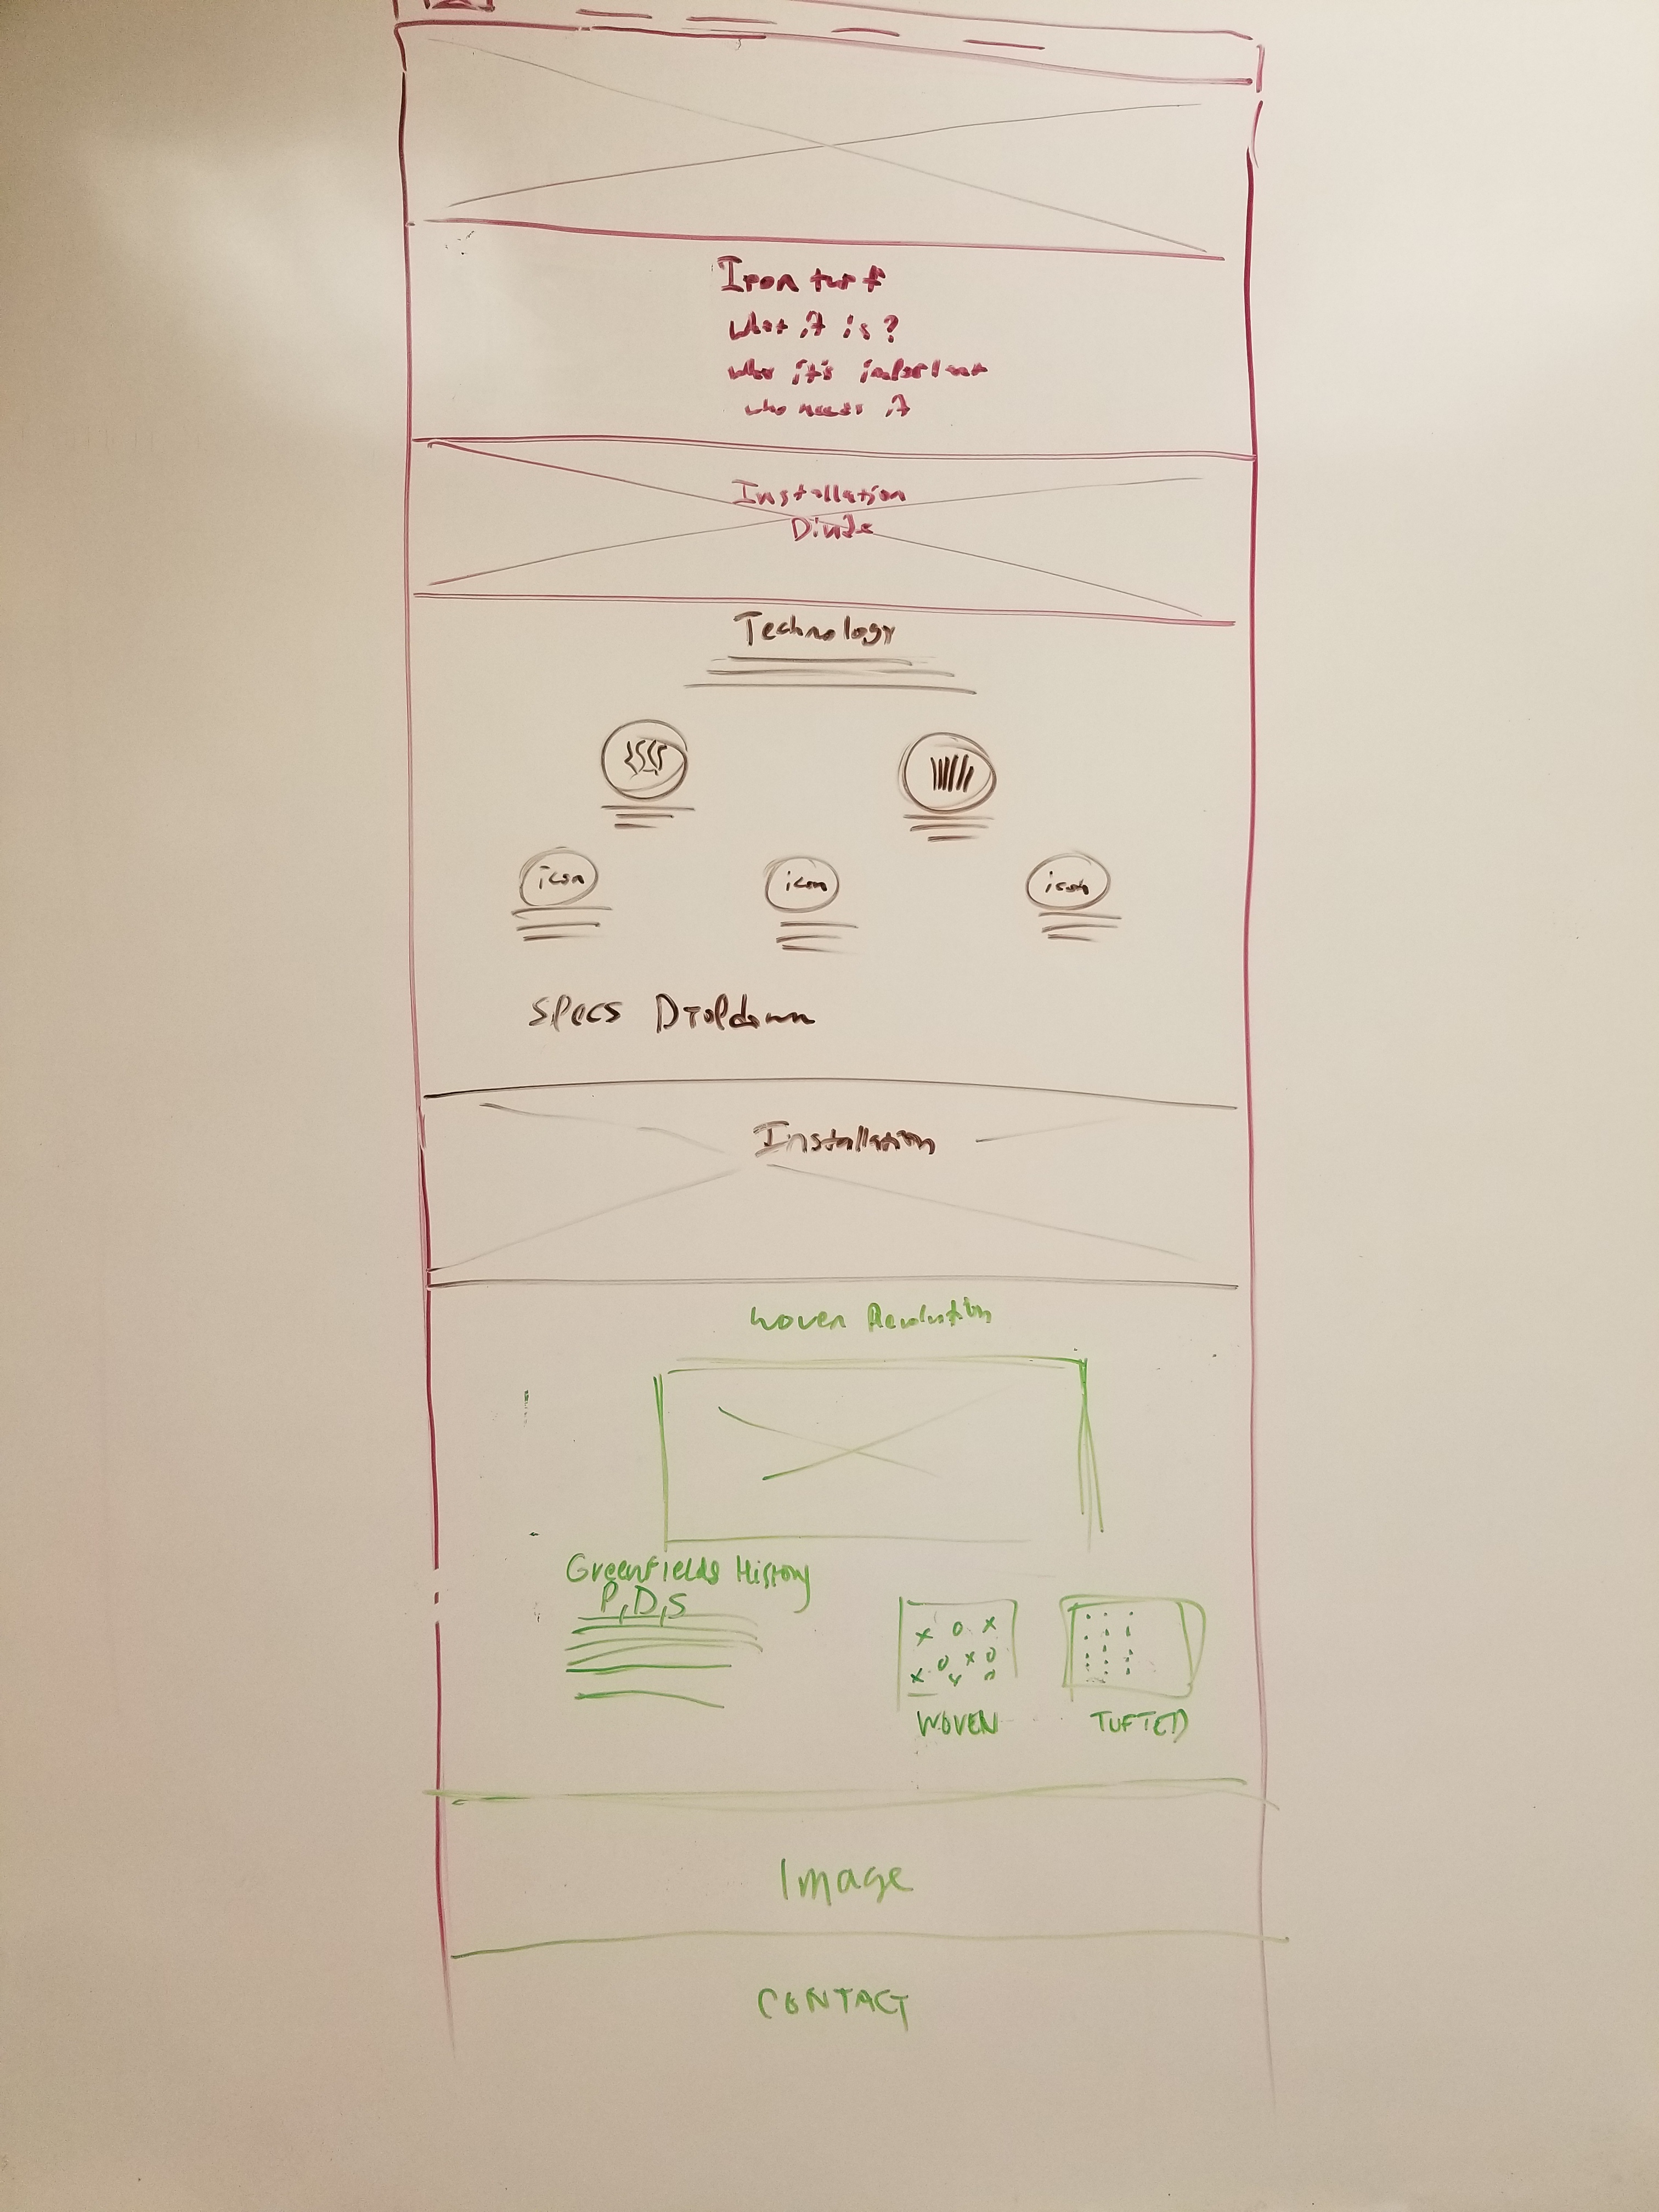 Iron turf
What it is?
why it's important
who needs it
Installation
Technology
icon
icon
icon
Specs Dropdown
Installation
Woven Revolution
Greenfields History
P,D,S
x o x
x o x o
WOVEN
TUFTED
Image
CONTACT